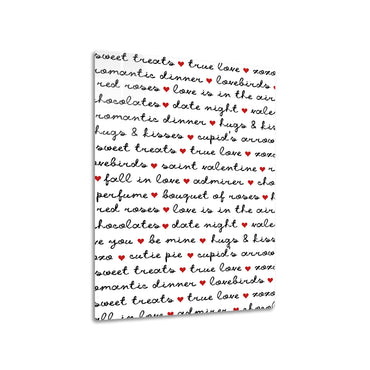 sweet treats ♥ true love ♥ xoxo
romantic dinner ♥ lovebirds ♥
red roses ♥ love is in the air
chocolates ♥ date night ♥ vale
romantic dinner ♥ hugs & k
hugs & kisses ♥ cupid's arrow
sweet treats ♥ true love ♥ xoxo
ovebirds ♥ saint valentine ♥ r
♥ fall in love ♥ admirer ♥ cho
perfume ♥ bouquet of roses ♥ h
red roses ♥ love is in the air
chocolates ♥ date night ♥ vale
ve you ♥ be mine ♥ hugs & kiss
oxo ♥ cutie pie ♥ cupid's arrow
sweet treats ♥ true love ♥ xoxo
omantic dinner ♥ lovebirds ♥
sweet treats ♥ true love ♥ xoxo
all in love ♥ admirer ♥ choc